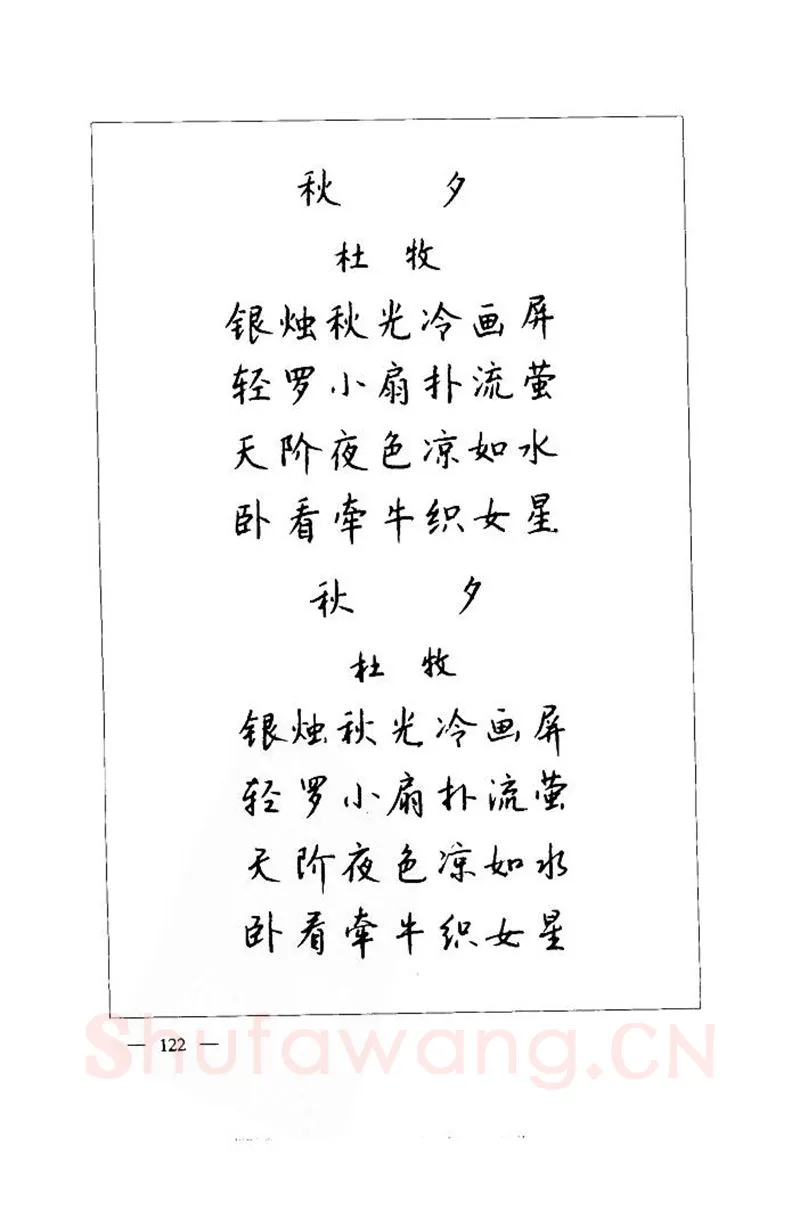 秋 夕
杜 牧
银烛秋光冷画屏
轻罗小扇扑流萤
天阶夜色凉如水
卧看牵牛织女星
秋 夕
杜 牧
银烛秋光冷画屏
轻罗小扇扑流萤
天阶夜色凉如水
卧看牵牛织女星
— 122 —
Shufawang.CN